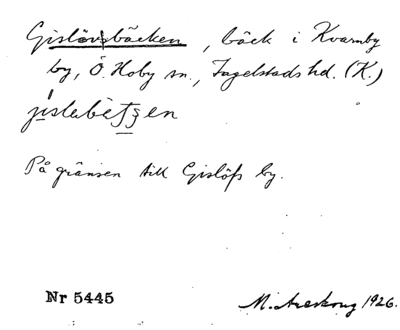 Gislövsbäcken, bäck i Kvarnby
by, Ö. Hoby sn., Ingelstads hd. (K.)
På gränsen till Gislöfs by.
Nr 5445 M. Areskoug 1926.